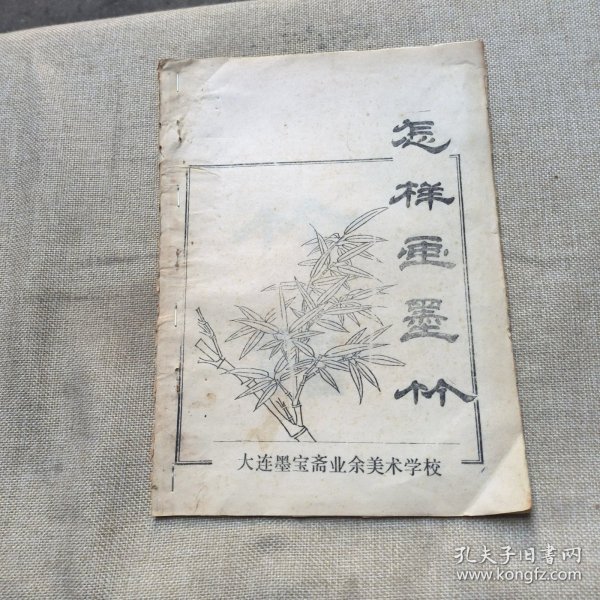 怎样画墨竹
大连墨宝斋业余美术学校
孔夫子旧书网
www.kongfz.com